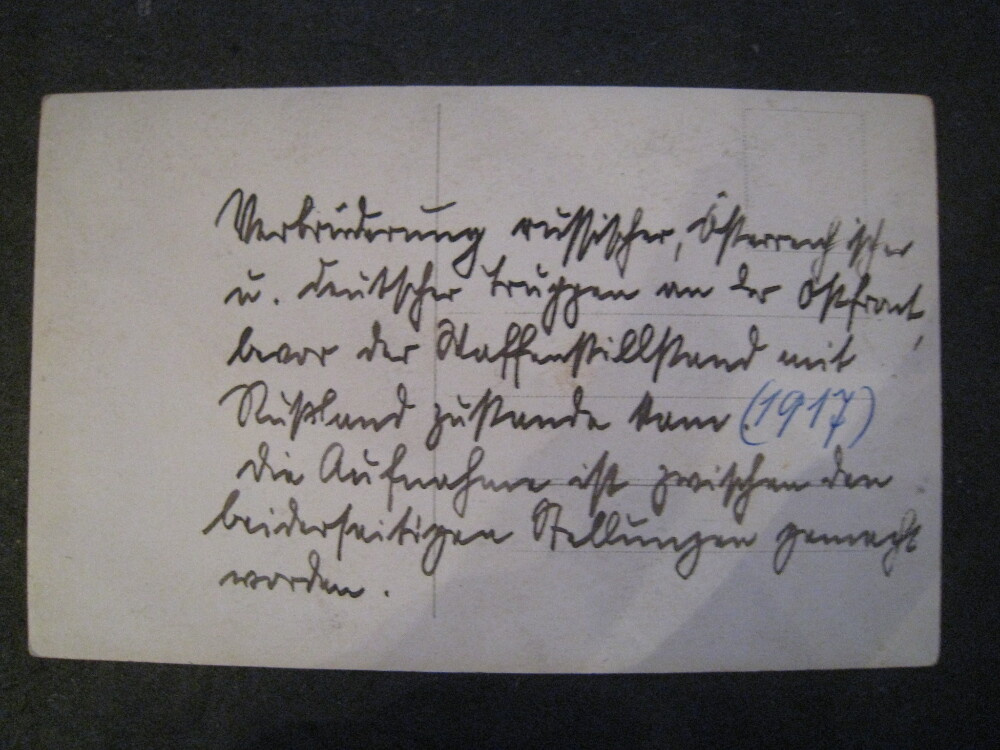 Verbrüderung russischer, Österreichischer
u. deutscher Truppen an der Ostfront,
bevor der Waffenstillstand mit
Rußland zustande kam (1917)
Die Aufnahme ist zwischen den
beiderseitigen Stellungen gemacht
worden.